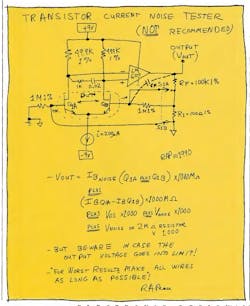 TRANSISTOR CURRENT NOISE TESTER
(NOT
RECOMMENDED)
+9V
OUTPUT
(VOUT)
499K
1%
499K
1%
1K
0.02
Q3A
Q3B
1MΩ
1MΩ
RF=100K1%
RS=100Ω1%
I=200µA
-9V
- VOUT = IB NOISE (Q3A PLUS Q3B) × 1000MΩ
PLUS
(IBQ3A-IBQ3B) × 1000MΩ
PLUS VOS × 1000 PLUS VNOISE × 1000
PLUS VNOISE OF 2MΩ RESISTOR
× 1000
- BUT BEWARE IN CASE THE
OUTPUT VOLTAGE GOES INTO LIMIT!
- "FOR WORST RESULTS MAKE ALL WIRES
AS LONG AS POSSIBLE!
RAPease